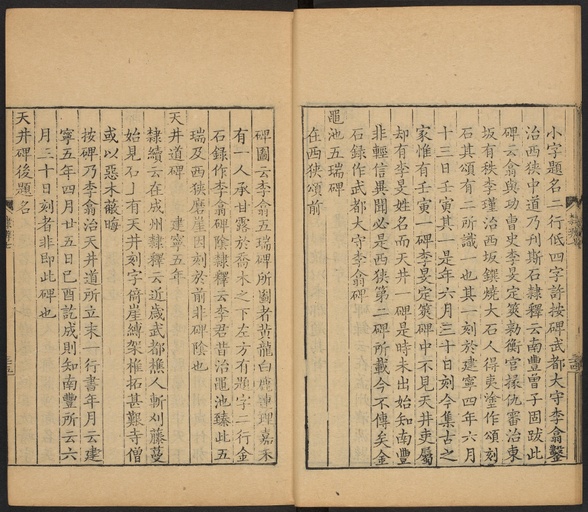 小字題名二行低四字許按碑武都太守李翕鑿
治西狹中道乃刋斯石隸釋云南豐曾子固跋此
碑云翕與功曹史李旻定筴勑衡官掾仇審治東
坂有秩李瑾治西坂鐉燒大石人得夷塗作頌刻
石其頌有二所識一也其一刻於建寧四年六月
十三日壬寅其一是年六月三十日刻今集古之
家惟有壬寅一碑李旻定筴碑中不見天井吏屬
却有李旻姓名而天井一碑是時未出始知南豐
非輕信異聞必是西狹第二碑所載今不傳矣金
石録作武都大守李翕碑
黽池五瑞碑
在西狹頌前
碑圖云李翕五瑞碑所圖者黄龍白鹿連理嘉禾
有一人承甘露於喬木之下左方有題字二行金
石録作李翕碑陰隸釋云李君昔治黽池臻此五
瑞及西狹磨崖因刻於前非碑陰也
天井道碑 建寧五年
隸續云在成州隸釋云近歲武都樵人斬刈藤蔓
始見石上有天井刻字倚崖縛架椎拓甚艱寺僧
或以惡木蔽晦
按碑乃李翕治天井道所立末一行書年月云建
寧五年四月廿五日已酉訖成則知南豐所云六
月三十日刻者非即此碑也
天井碑後題名